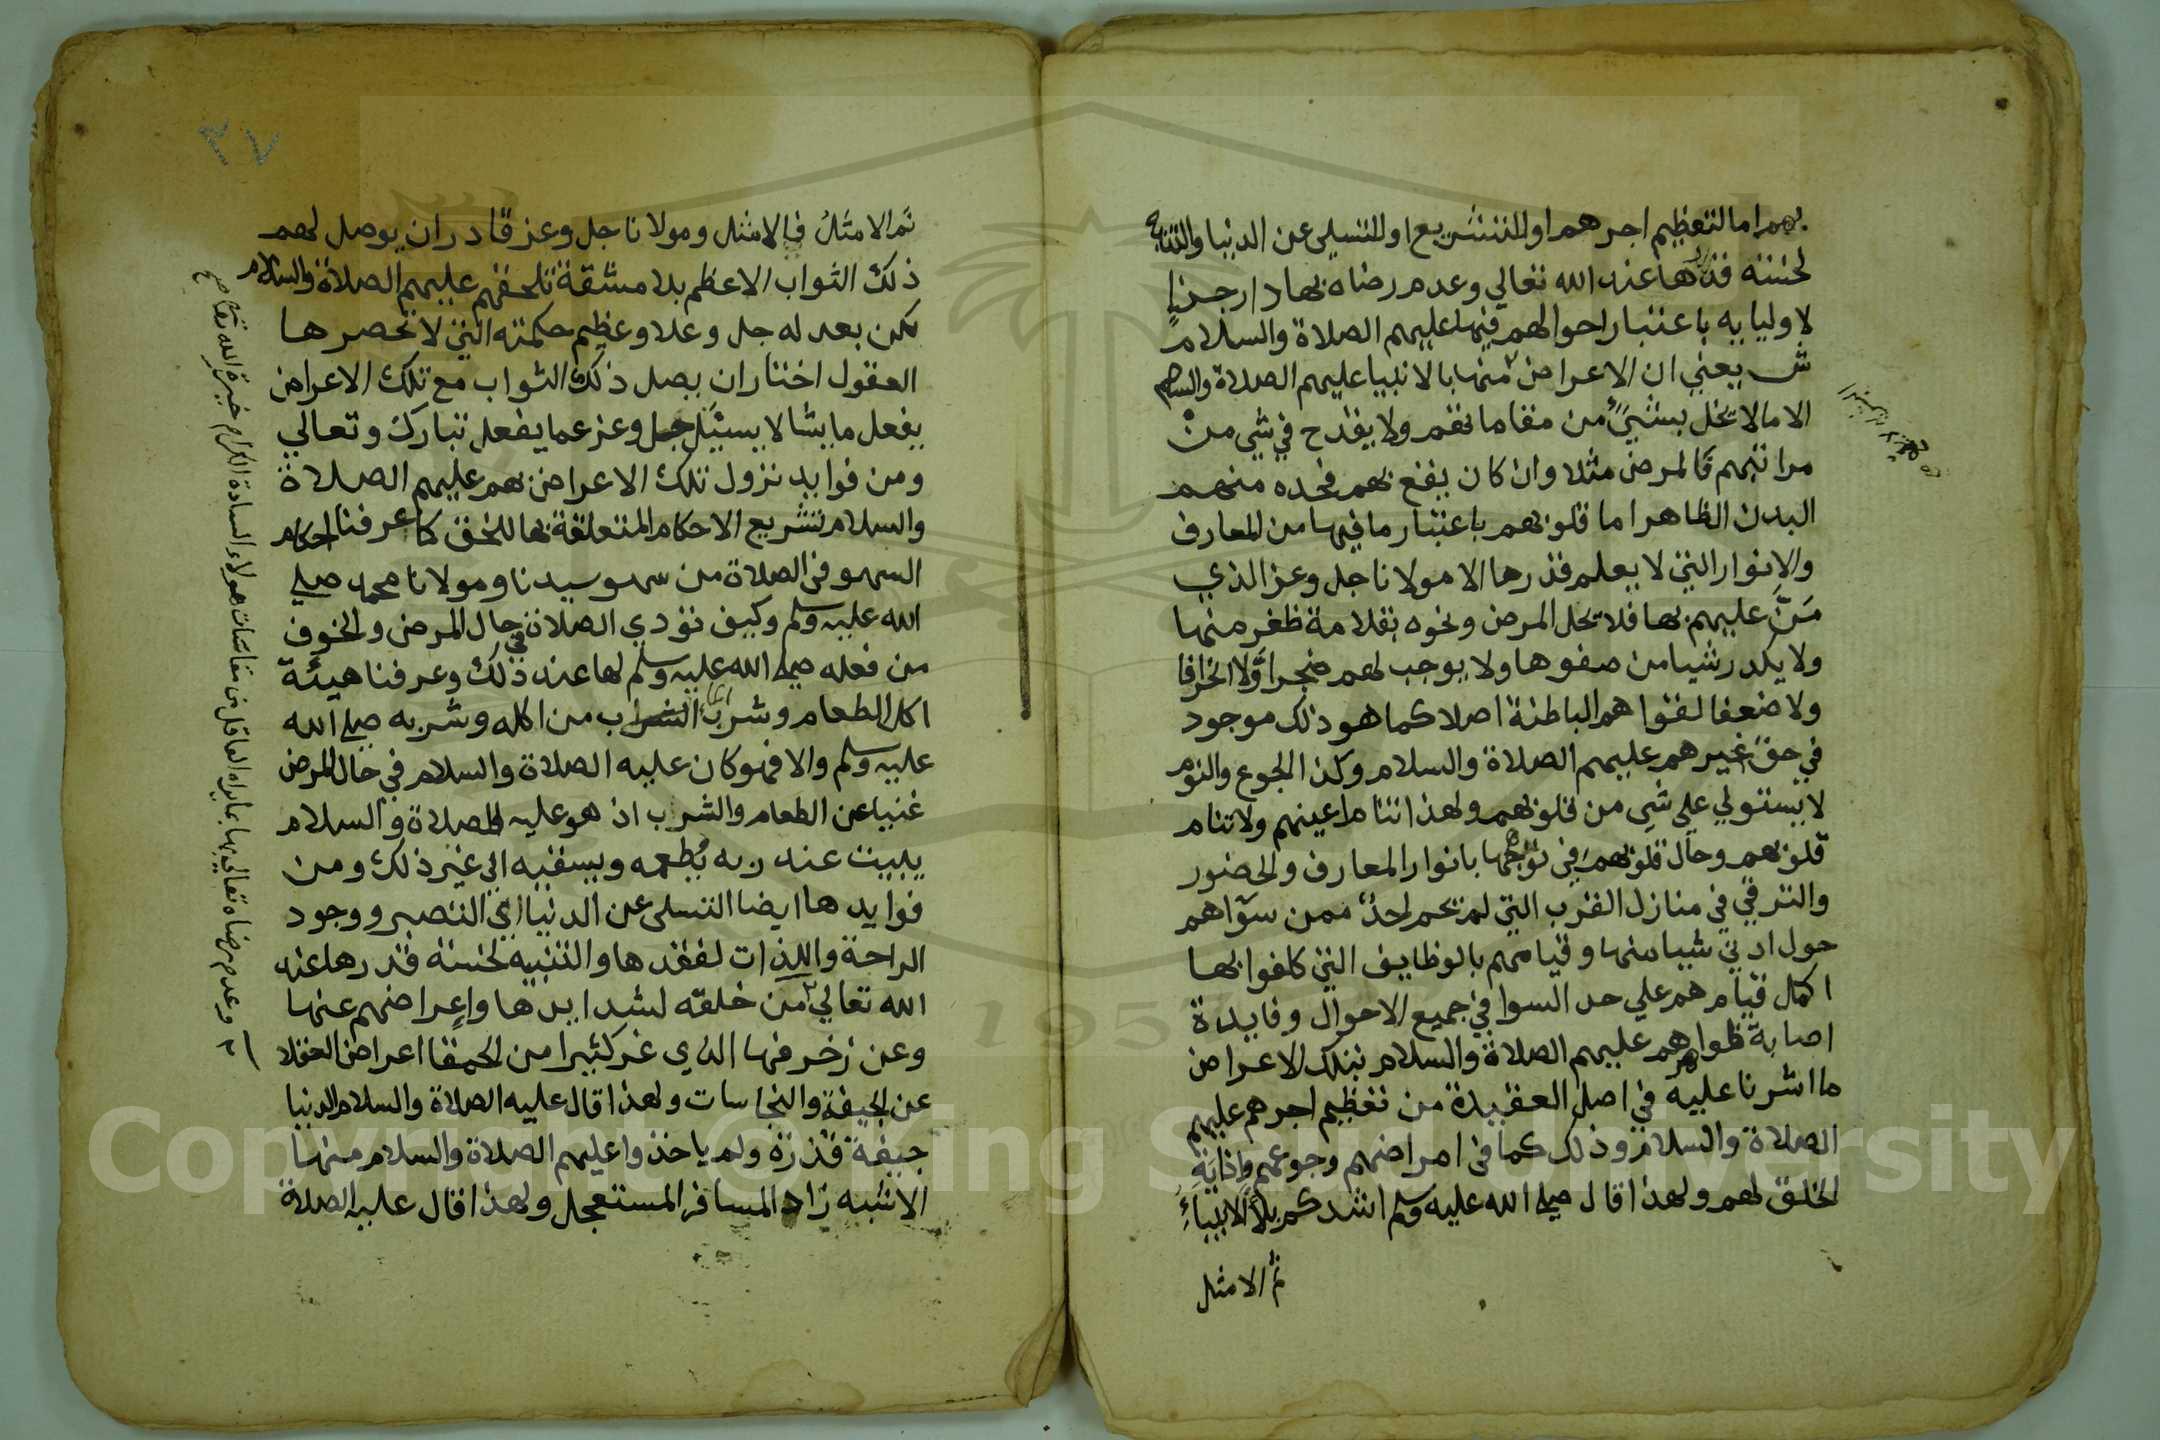 بهم اما لتعظيم اجرهم او للتشريع او للتسلي عن الدنيا والتنبيه
لخسة قدرها عند الله تعالي وعدم رضاه بها دار جزاء
لاوليايه باعتبار احوالهم فيها عليهم الصلاة والسلام
ش يعني ان الاعراض منها بالانبيا عليهم الصلاة والسلام
الا ما لا يخل بشيء من مقاماتهم ولا يقدح في شي من
مراتبهم كالمرض مثلا وان كان يقع بهم فحده منهم
البدن الظاهر اما قلوبهم باعتبار ما فيها من المعارف
والانوار التي لا يعلم قدرها الا مولانا جل وعز الذي
منَّ عليهم بها فلا يخل المرض ونحوه بقلامة ظفر منها
ولا يكدر شيا من صفوها ولا يوجب لهم ضجرا ولا انحرافا
ولا ضعفا لقواهم الباطنة اصلا كما هو ذلك موجود
في حق غيرهم عليهم الصلاة والسلام وكذا الجوع والنوم
لا يستولي علي شي من قلوبهم ولهذا تنام اعينهم ولا تنام
قلوبهم وحال قلوبهم في توجهها بانوار المعارف والحضور
والترقي في منازل القرب التي لم يحم احد ممن سواهم
حول ادني شيا منها وقيامهم بالوظايف التي كلفوا بها
اكمل قيامهم علي حد السوا في جميع الاحوال وفايدة
اصابة ظواهرهم عليهم الصلاة والسلام بتلك الاعراض
ما اشرنا عليه في اصل العقيدة من تعظيم اجرهم عليهم
الصلاة والسلام وذلك كما في امراضهم وجوعهم واذاية
الخلق لهم ولهذا قال صلي الله عليه وسلم اشدكم بلاء الانبياء
ثم الامثل
٢٧
ثم الامثل فالامثل ومولانا جل وعز قادر ان يوصل لهم
ذلك الثواب الاعظم بلا مشقة تلحقهم عليهم الصلاة والسلام
لكن بعدله جل وعلا وعظيم حكمته التي لا تحصرها
العقول اختار ان يصل ذلك الثواب مع تلك الاعراض
يفعل ما يشا لا يسئل جل وعز عما يفعل تبارك وتعالي
ومن فوايد نزول تلك الاعراض بهم عليهم الصلاة
والسلام تشريع الاحكام المتعلقة بها للخلق كما عرفنا احكام
السهو في الصلاة من سهو سيدنا ومولانا محمد صلي
الله عليه وسلم وكيف تؤدي الصلاة في حال المرض والخوف
من فعله صلي الله عليه وسلم لها عند ذلك وعرفنا هيئة
اكل الطعام وشرب الشراب من اكله وشربه صلي الله
عليه وسلم والا فهو كان عليه الصلاة والسلام في حال المرض
غنيا عن الطعام والشرب اذ هو عليه الصلاة والسلام
يبيت عند ربه يُطعمه ويسقيه الي غير ذلك ومن
فوايدها ايضا التسلي عن الدنيا اي التصبر ووجود
الراحة واللذات لفقدها والتنبيه لخسة قدرها عند
الله تعالي من خلقه لشدايدها واعراضهم عنها
وعن زخرفها الذي غر كثيرا من الحمقا اعراض العقلا
عن الجيفة والنجاسات ولهذا قال عليه الصلاة والسلام الدنيا
جيفة قذرة ولم ياخذوا عليهم الصلاة والسلام منها
الا شبه زاد المسافر المستعجل ولهذا قال عليه الصلاة
بما يراه العاقل من مقاسات هولاء السادة الكرام خيرة الله
وعدم رضاه تعالي بها
Copyright © King Saud University
195